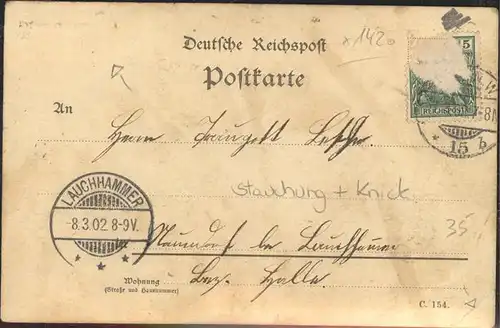 x 142.
Deutsche Reichspost
Postkarte
5
REICHSPOST
15 b
An
Herrn Traugott
LAUCHHAMMER
-8.3.02 8-9V.
Stauchung + Knick
35.-
Naundorf bei Lauchhammer
Bez. Halle
Wohnung
(Straße und Hausnummer)
C. 154.